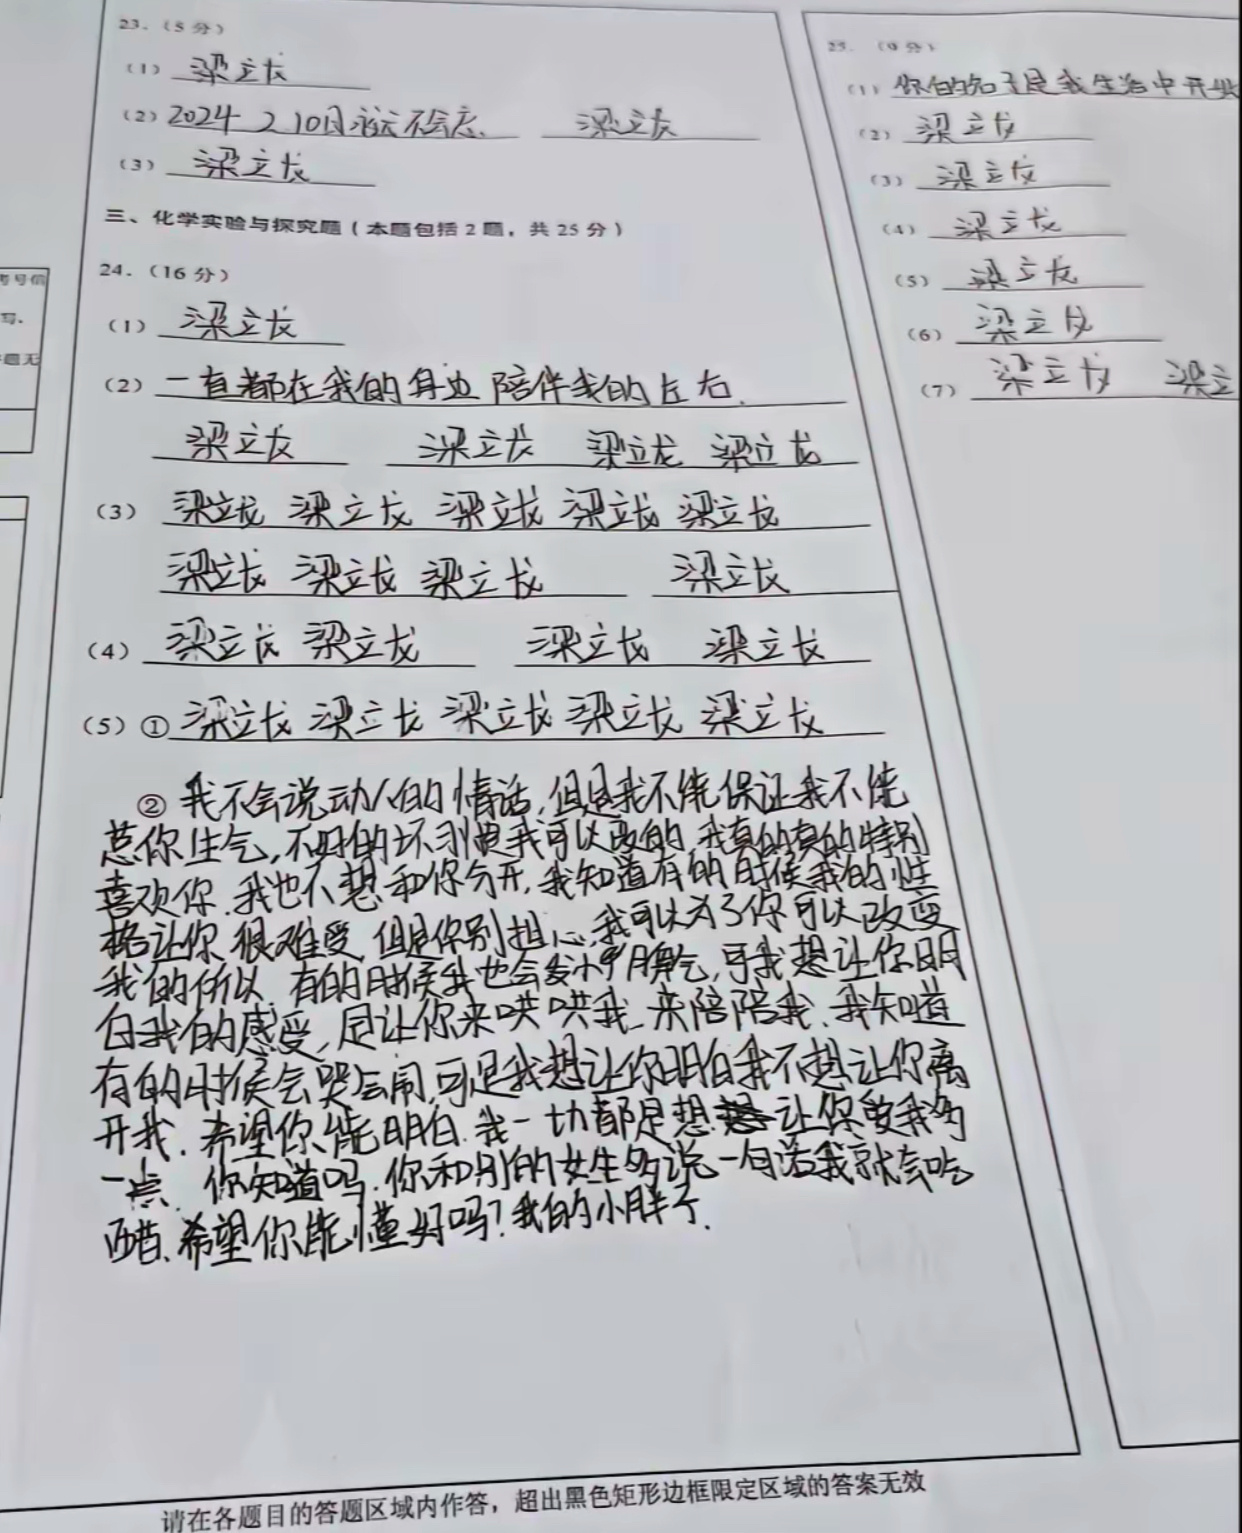 23.（5分）
（1）梁立龙
（2）2024 2 10日永远不会忘. 梁立龙
（3）梁立龙
三、化学实验与探究题（本题包括2题，共25分）
24.（16分）
（1）梁立龙
（2）一直都在我的身边陪伴我的左右.
梁立龙 梁立龙 梁立龙 梁立龙
（3）梁立龙 梁立龙 梁立龙 梁立龙 梁立龙
梁立龙 梁立龙 梁立龙 梁立龙
（4）梁立龙 梁立龙 梁立龙 梁立龙
（5）①梁立龙 梁立龙 梁立龙 梁立龙 梁立龙
②我不会说动人的情话,但是我不能保证我不能
惹你生气,不好的坏习惯我可以改的,我真的真的特别
喜欢你.我也不想和你分开,我知道有的时候我的性
格让你很难受,但是你别担心,我可以为了你可以改变
我的所以.有的时候我也会发小脾气,可我想让你明
白我的感受,是让你来哄哄我.来陪陪我.我知道
有的时候会哭会闹,可是我想让你明白我不想让你离
开我.希望你能明白.我一切都是想让你爱我多
一点.你知道吗.你和别的女生多说一句话我就会吃
醋.希望你能懂好吗?我的小胖子.
25.（9分）
（1）你的是我生活中开
（2）梁立龙
（3）梁立龙
（4）梁立龙
（5）梁立龙
（6）梁立龙
（7）梁立龙 梁立
考号信
写.
题无
请在各题目的答题区域内作答，超出黑色矩形边框限定区域的答案无效